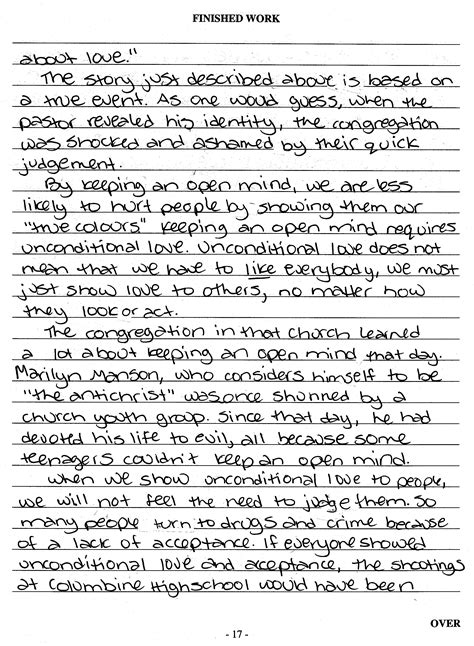 FINISHED WORK
about love."
The story just described above is based on
a true event. As one would guess, when the
pastor revealed his identity, the congregation
was shocked and ashamed by their quick
judgement.
By keeping an open mind, we are less
likely to hurt people by showing them our
"true colours" keeping an open mind requires
unconditional love. Unconditional love does not
mean that we have to like everybody, we must
just show love to others, no matter how
they look or act.
The congregation in that church learned
a lot about keeping an open mind that day.
Marilyn Manson, who considers himself to be
"the antichrist" was once shunned by a
church youth group. Since that day, he had
devoted his life to evil, all because some
teenagers couldn't keep an open mind.
When we show unconditional love to people,
we will not feel the need to judge them. So
many people turn to drugs and crime because
of a lack of acceptance. If everyone showed
unconditional love and acceptance, the shootings
at Columbine Highschool would have been
OVER
- 17 -